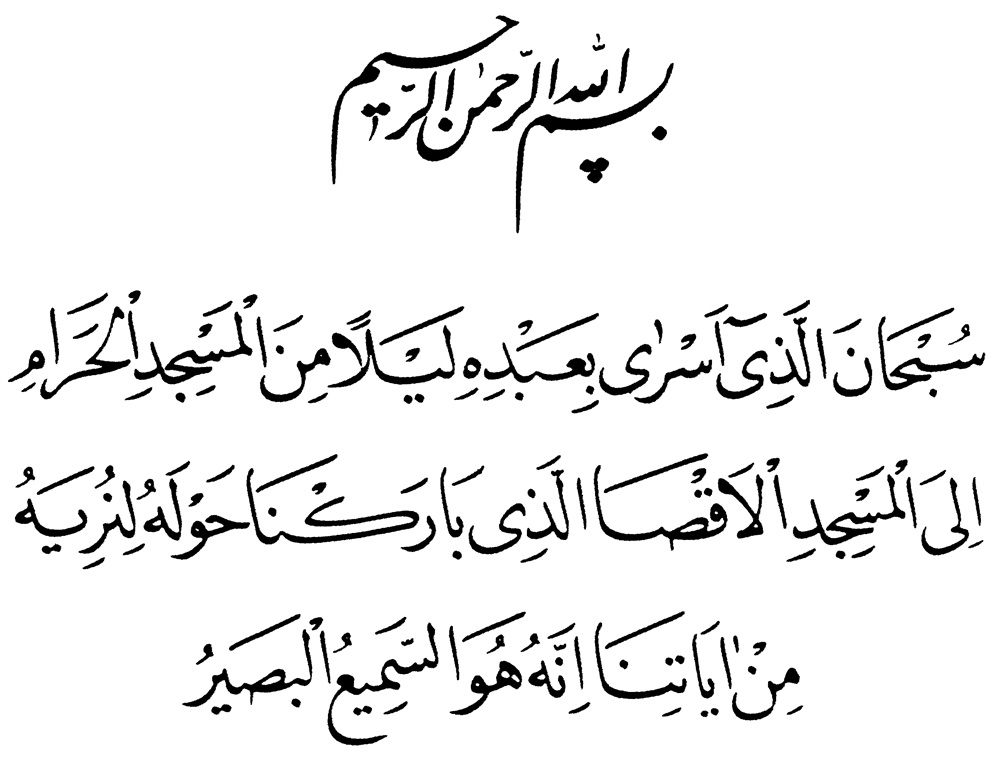 بسم الله الرّحمٰن الرّحيم
سُبْحَانَ الَّذِىٓ اَسْرٰى بِعَبْدِهِ لَيْلًا مِنَ الْمَسْجِدِ الْحَرَامِ
اِلَى الْمَسْجِدِ الْاَقْصَا الَّذِى بَارَكْنَا حَوْلَهُ لِنُرِيَهُ
مِنْ اٰيَاتِنَا اِنَّهُ هُوَ السَّمِيعُ الْبَصِيرُ